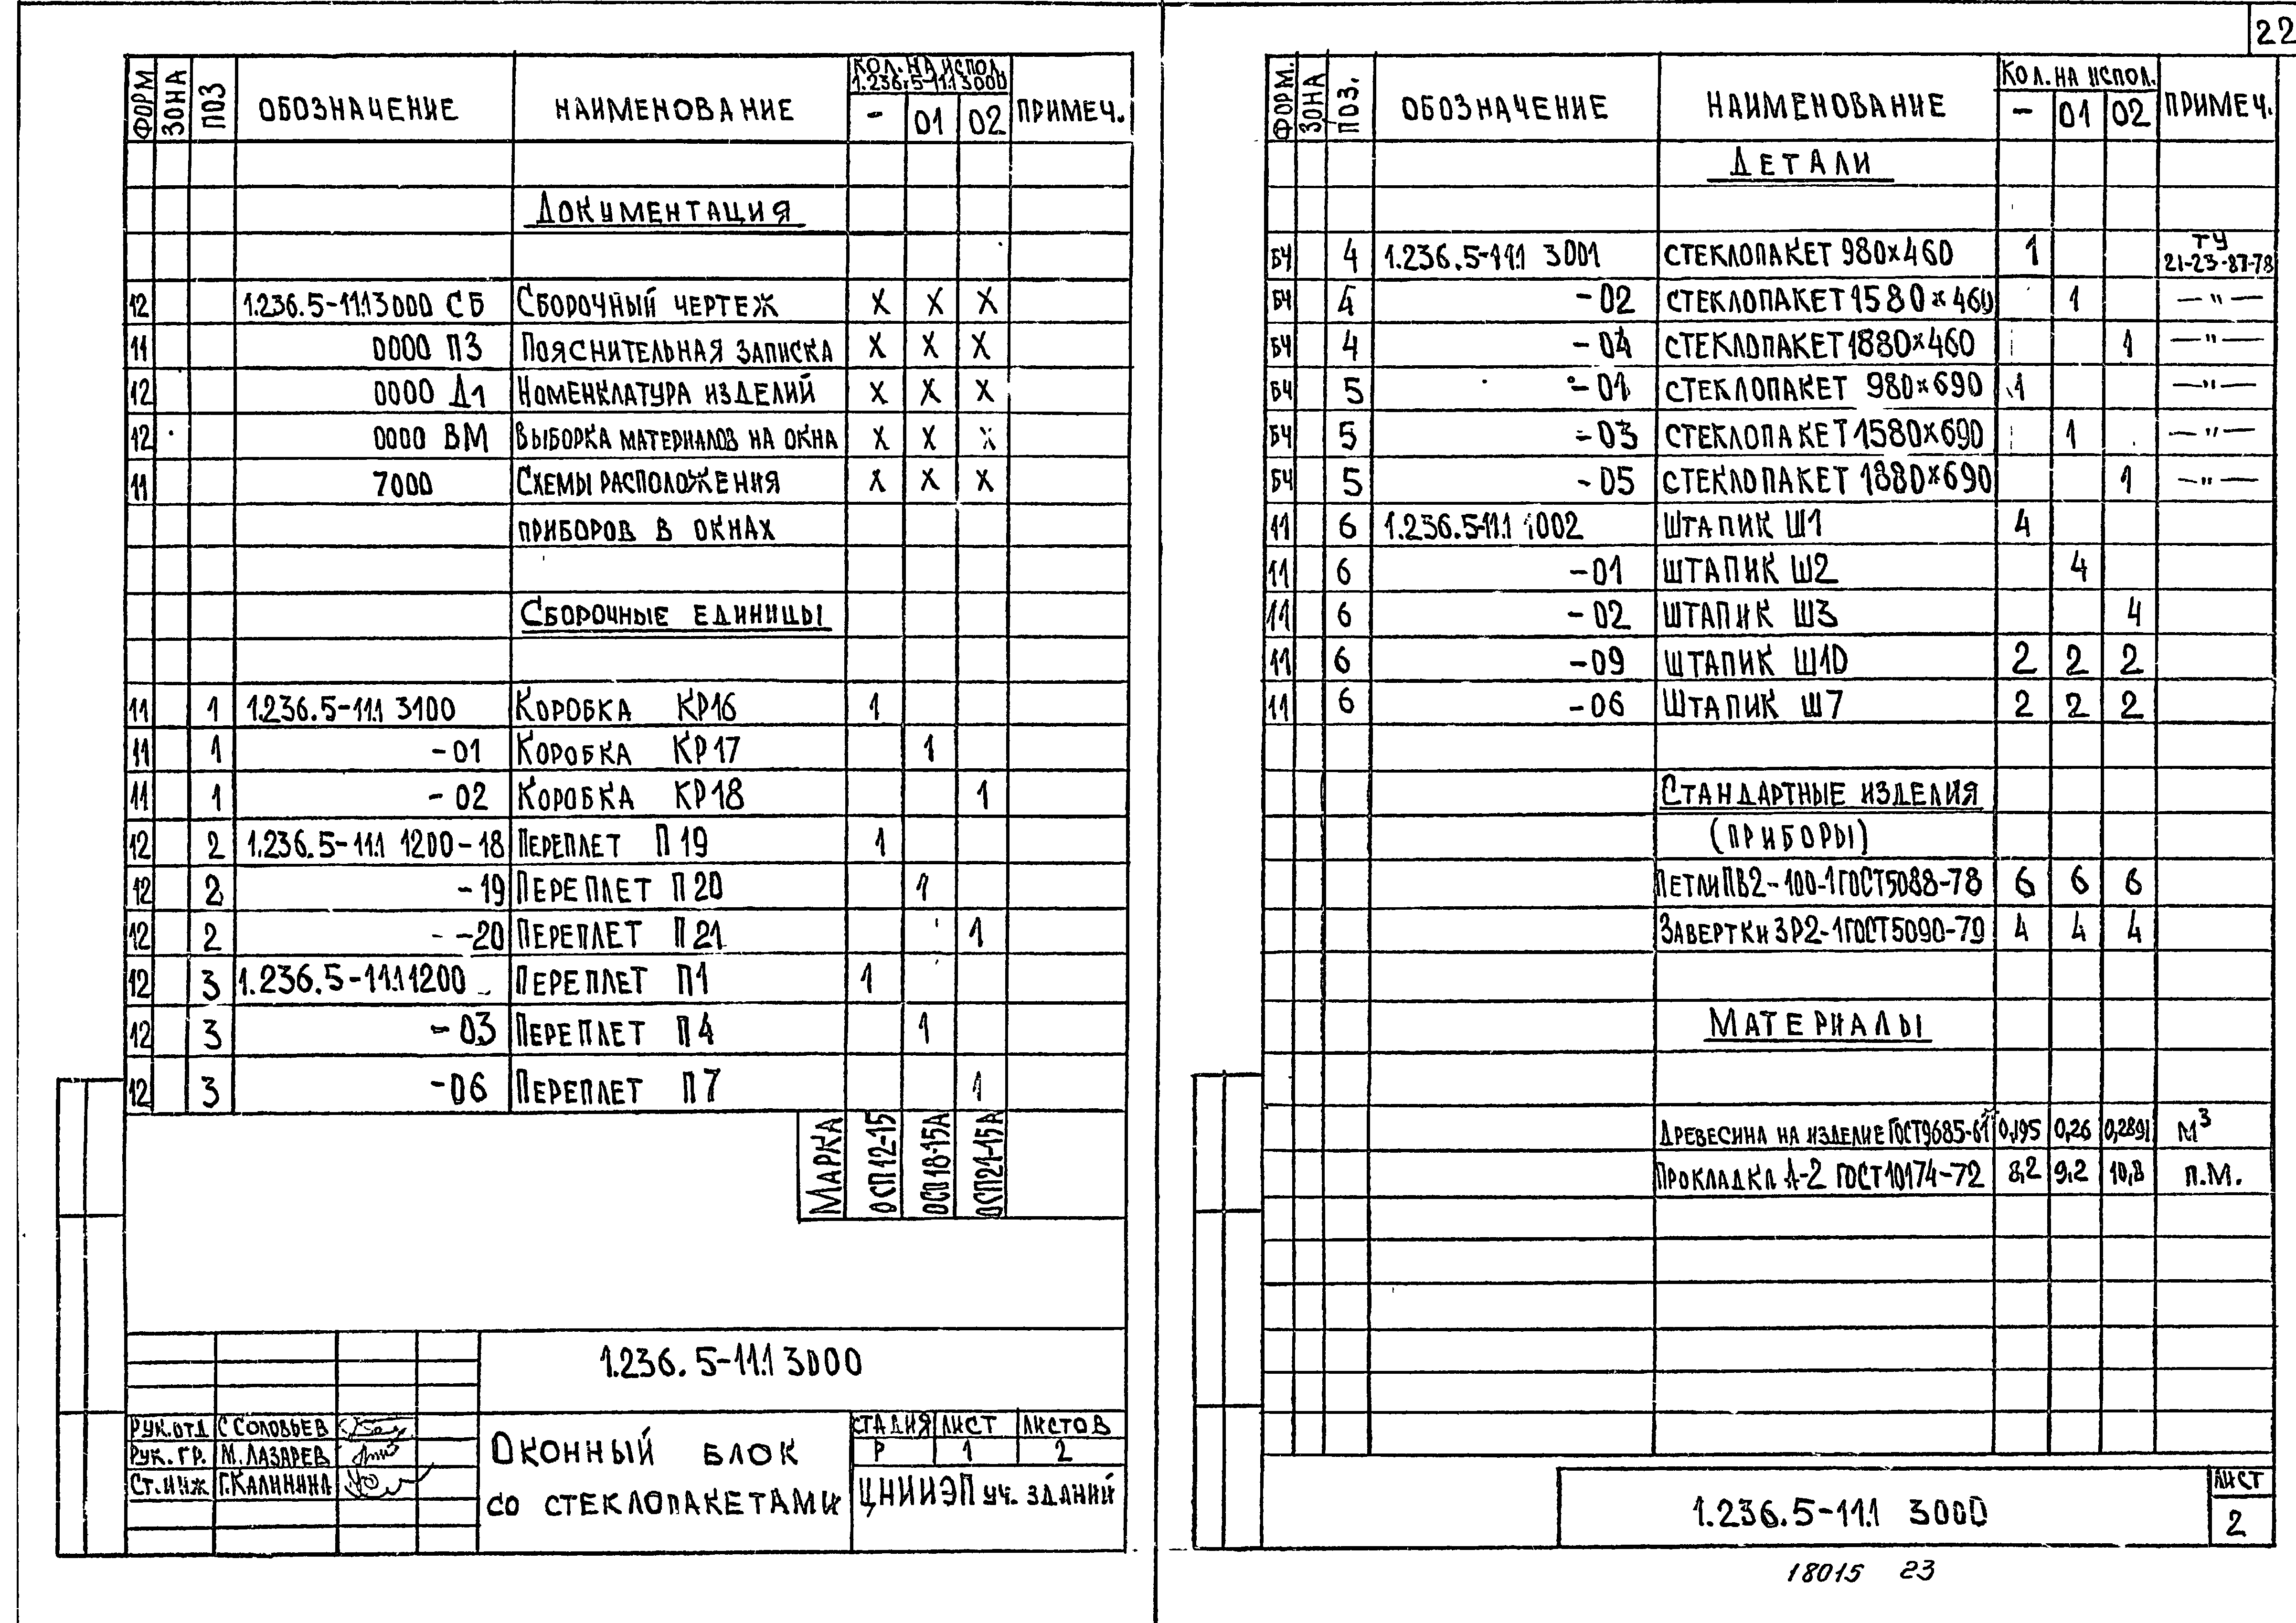 22
ФОРМ ЗОНА ПОЗ ОБОЗНАЧЕНИЕ НАИМЕНОВАНИЕ КОЛ. НА ИСПОЛ. 1.236.5-11.1 3000 - 01 02 ПРИМЕЧ.
ДОКУМЕНТАЦИЯ
12 1.236.5-11.1 3000 СБ СБОРОЧНЫЙ ЧЕРТЕЖ X X X
11 0000 ПЗ ПОЯСНИТЕЛЬНАЯ ЗАПИСКА X X X
12 0000 Д1 НОМЕНКЛАТУРА ИЗДЕЛИЙ X X X
12 0000 ВМ ВЫБОРКА МАТЕРИАЛОВ НА ОКНА X X X
11 7000 СХЕМЫ РАСПОЛОЖЕНИЯ X X X
ПРИБОРОВ В ОКНАХ
СБОРОЧНЫЕ ЕДИНИЦЫ
11 1 1.236.5-11.1 3100 КОРОБКА КР16 1
11 1 -01 КОРОБКА КР17 1
11 1 -02 КОРОБКА КР18 1
12 2 1.236.5-11.1 1200-18 ПЕРЕПЛЕТ П19 1
12 2 -19 ПЕРЕПЛЕТ П20 1
12 2 -20 ПЕРЕПЛЕТ П21 1
12 3 1.236.5-11.1 1200 ПЕРЕПЛЕТ П1 1
12 3 -03 ПЕРЕПЛЕТ П4 1
12 3 -06 ПЕРЕПЛЕТ П7 1
МАРКА ОСП12-15 ОСП18-15А ОСП21-15А
1.236.5-11.1 3000
РУК.ОТД С СОЛОВЬЕВ
РУК. ГР. М. ЛАЗАРЕВ
СТ.ИНЖ Г.КАЛИНИНА
ОКОННЫЙ БЛОК
СО СТЕКЛОПАКЕТАМИ
СТАДИЯ ЛИСТ ЛИСТОВ
Р 1 2
ЦНИИЭП УЧ. ЗДАНИЙ
ФОРМ. ЗОНА ПОЗ. ОБОЗНАЧЕНИЕ НАИМЕНОВАНИЕ КОЛ. НА ИСПОЛ. - 01 02 ПРИМЕЧ.
ДЕТАЛИ
БЧ 4 1.236.5-11.1 3001 СТЕКЛОПАКЕТ 980х460 1 ТУ 21-23-87-78
БЧ 4 -02 СТЕКЛОПАКЕТ 1580х460 1 —"—
БЧ 4 -04 СТЕКЛОПАКЕТ 1880х460 1 —"—
БЧ 5 -01 СТЕКЛОПАКЕТ 980х690 1 —"—
БЧ 5 -03 СТЕКЛОПАКЕТ 1580х690 1 —"—
БЧ 5 -05 СТЕКЛОПАКЕТ 1880х690 1 —"—
11 6 1.236.5-11.1 1002 ШТАПИК Ш1 4
11 6 -01 ШТАПИК Ш2 4
11 6 -02 ШТАПИК Ш3 4
11 6 -09 ШТАПИК Ш10 2 2 2
11 6 -06 ШТАПИК Ш7 2 2 2
СТАНДАРТНЫЕ ИЗДЕЛИЯ
(ПРИБОРЫ)
ПЕТЛИ ПВ2-100-1 ГОСТ 5088-78 6 6 6
ЗАВЕРТКИ ЗР2-1 ГОСТ 5090-79 4 4 4
МАТЕРИАЛЫ
ДРЕВЕСИНА НА ИЗДЕЛИЕ ГОСТ 9685-61* 0,195 0,26 0,2891 М³
ПРОКЛАДКА А-2 ГОСТ 10174-72 8,2 9,2 10,8 П.М.
1.236.5-11.1 3000
ЛИСТ
2
18015 23